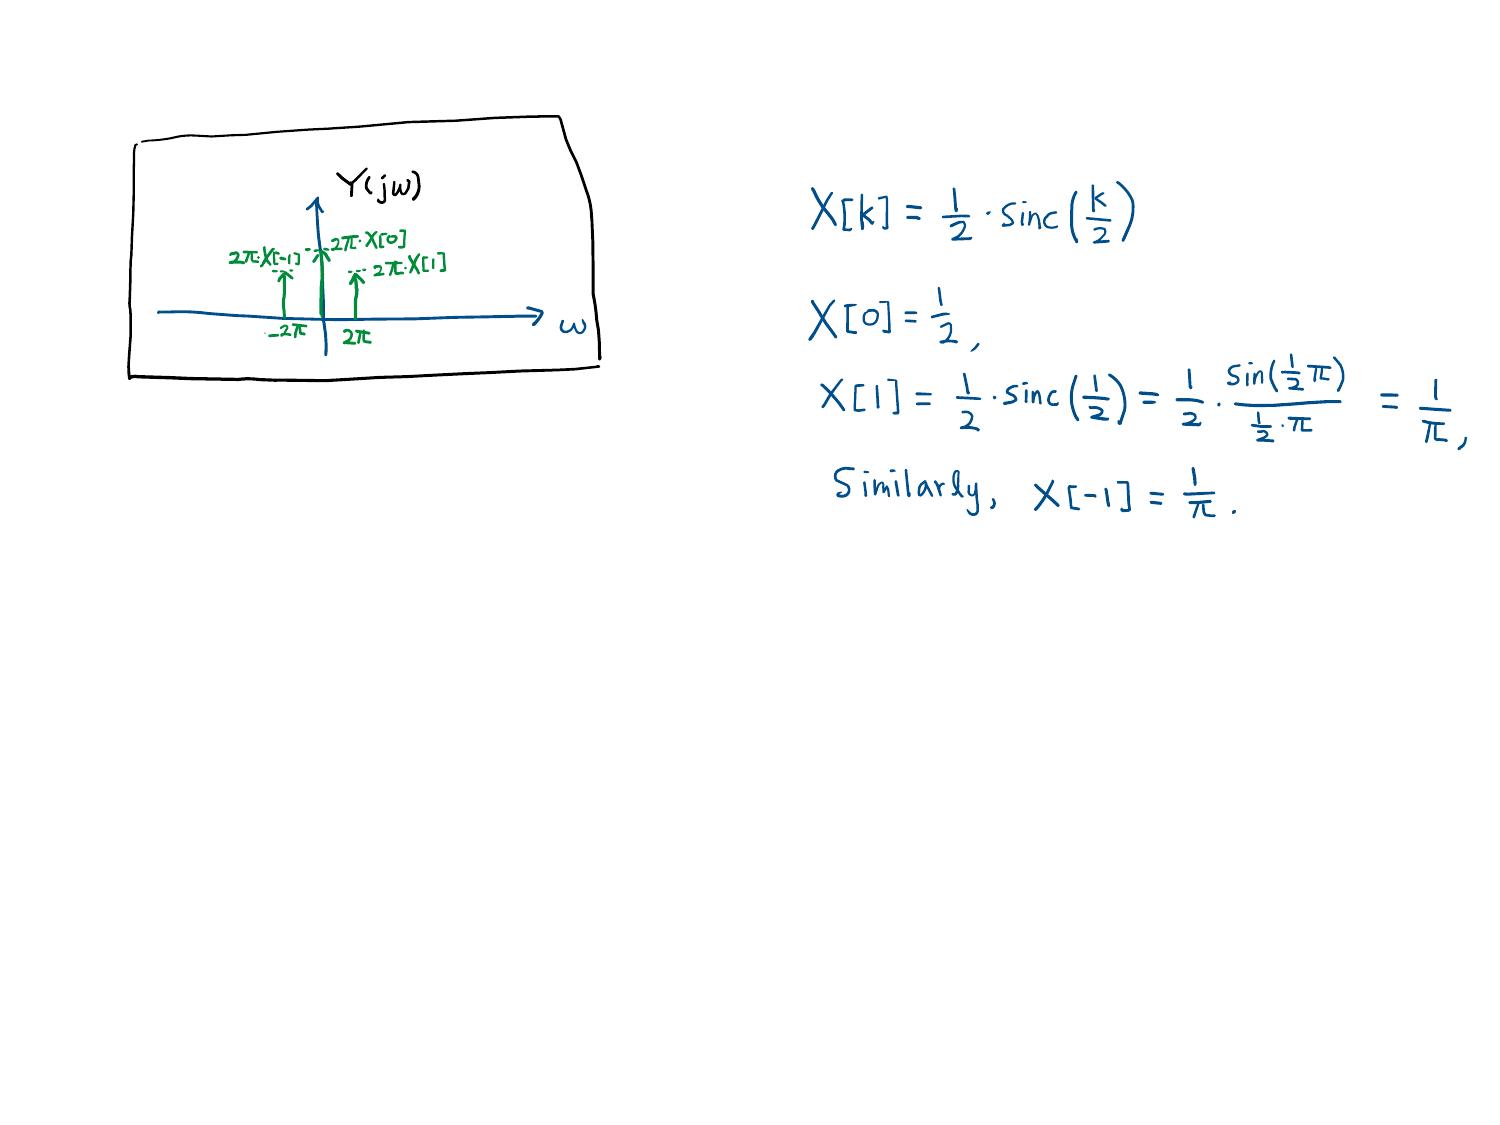 Y(jω)
2π·X[0]
2π·X[-1]
2π·X[1]
-2π
2π
ω
X[k] = 1/2 · sinc(k/2)
X[0] = 1/2,
X[1] = 1/2 · sinc(1/2) = 1/2 · sin(1/2 π) / (1/2 · π) = 1/π,
Similarly, X[-1] = 1/π.